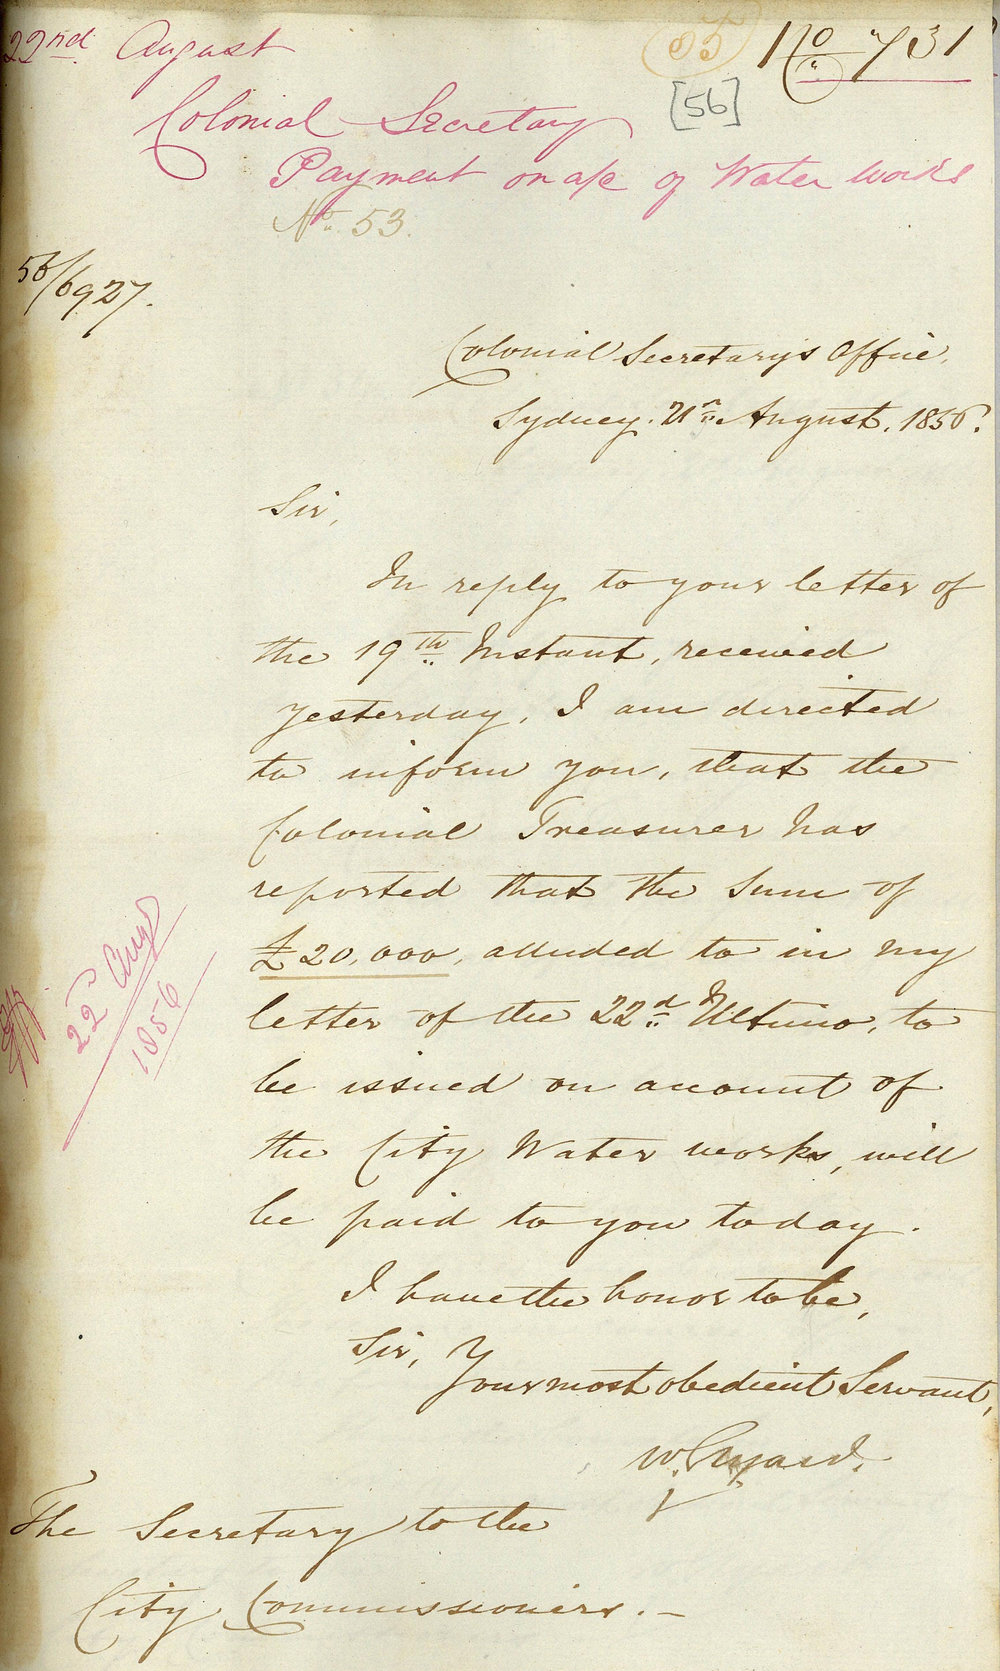 22nd August
No 731
[56]
Colonial Secretary
Payment on a/c of Water Works
No. 53.
56/6927.
Colonial Secretary's Office,
Sydney. 21st August, 1856.
Sir,
In reply to your letter of
the 19th Instant, received
yesterday, I am directed
to inform you, that the
Colonial Treasurer has
reported that the Sum of
£20,000, alluded to in my
letter of the 22d Ultimo, to
be issued on account of
the City Water works, will
be paid to you today.
I have the honor to be,
Sir,
Your most obedient Servant,
W.
The Secretary to the
City Commissioners. –
22d Augt
1856